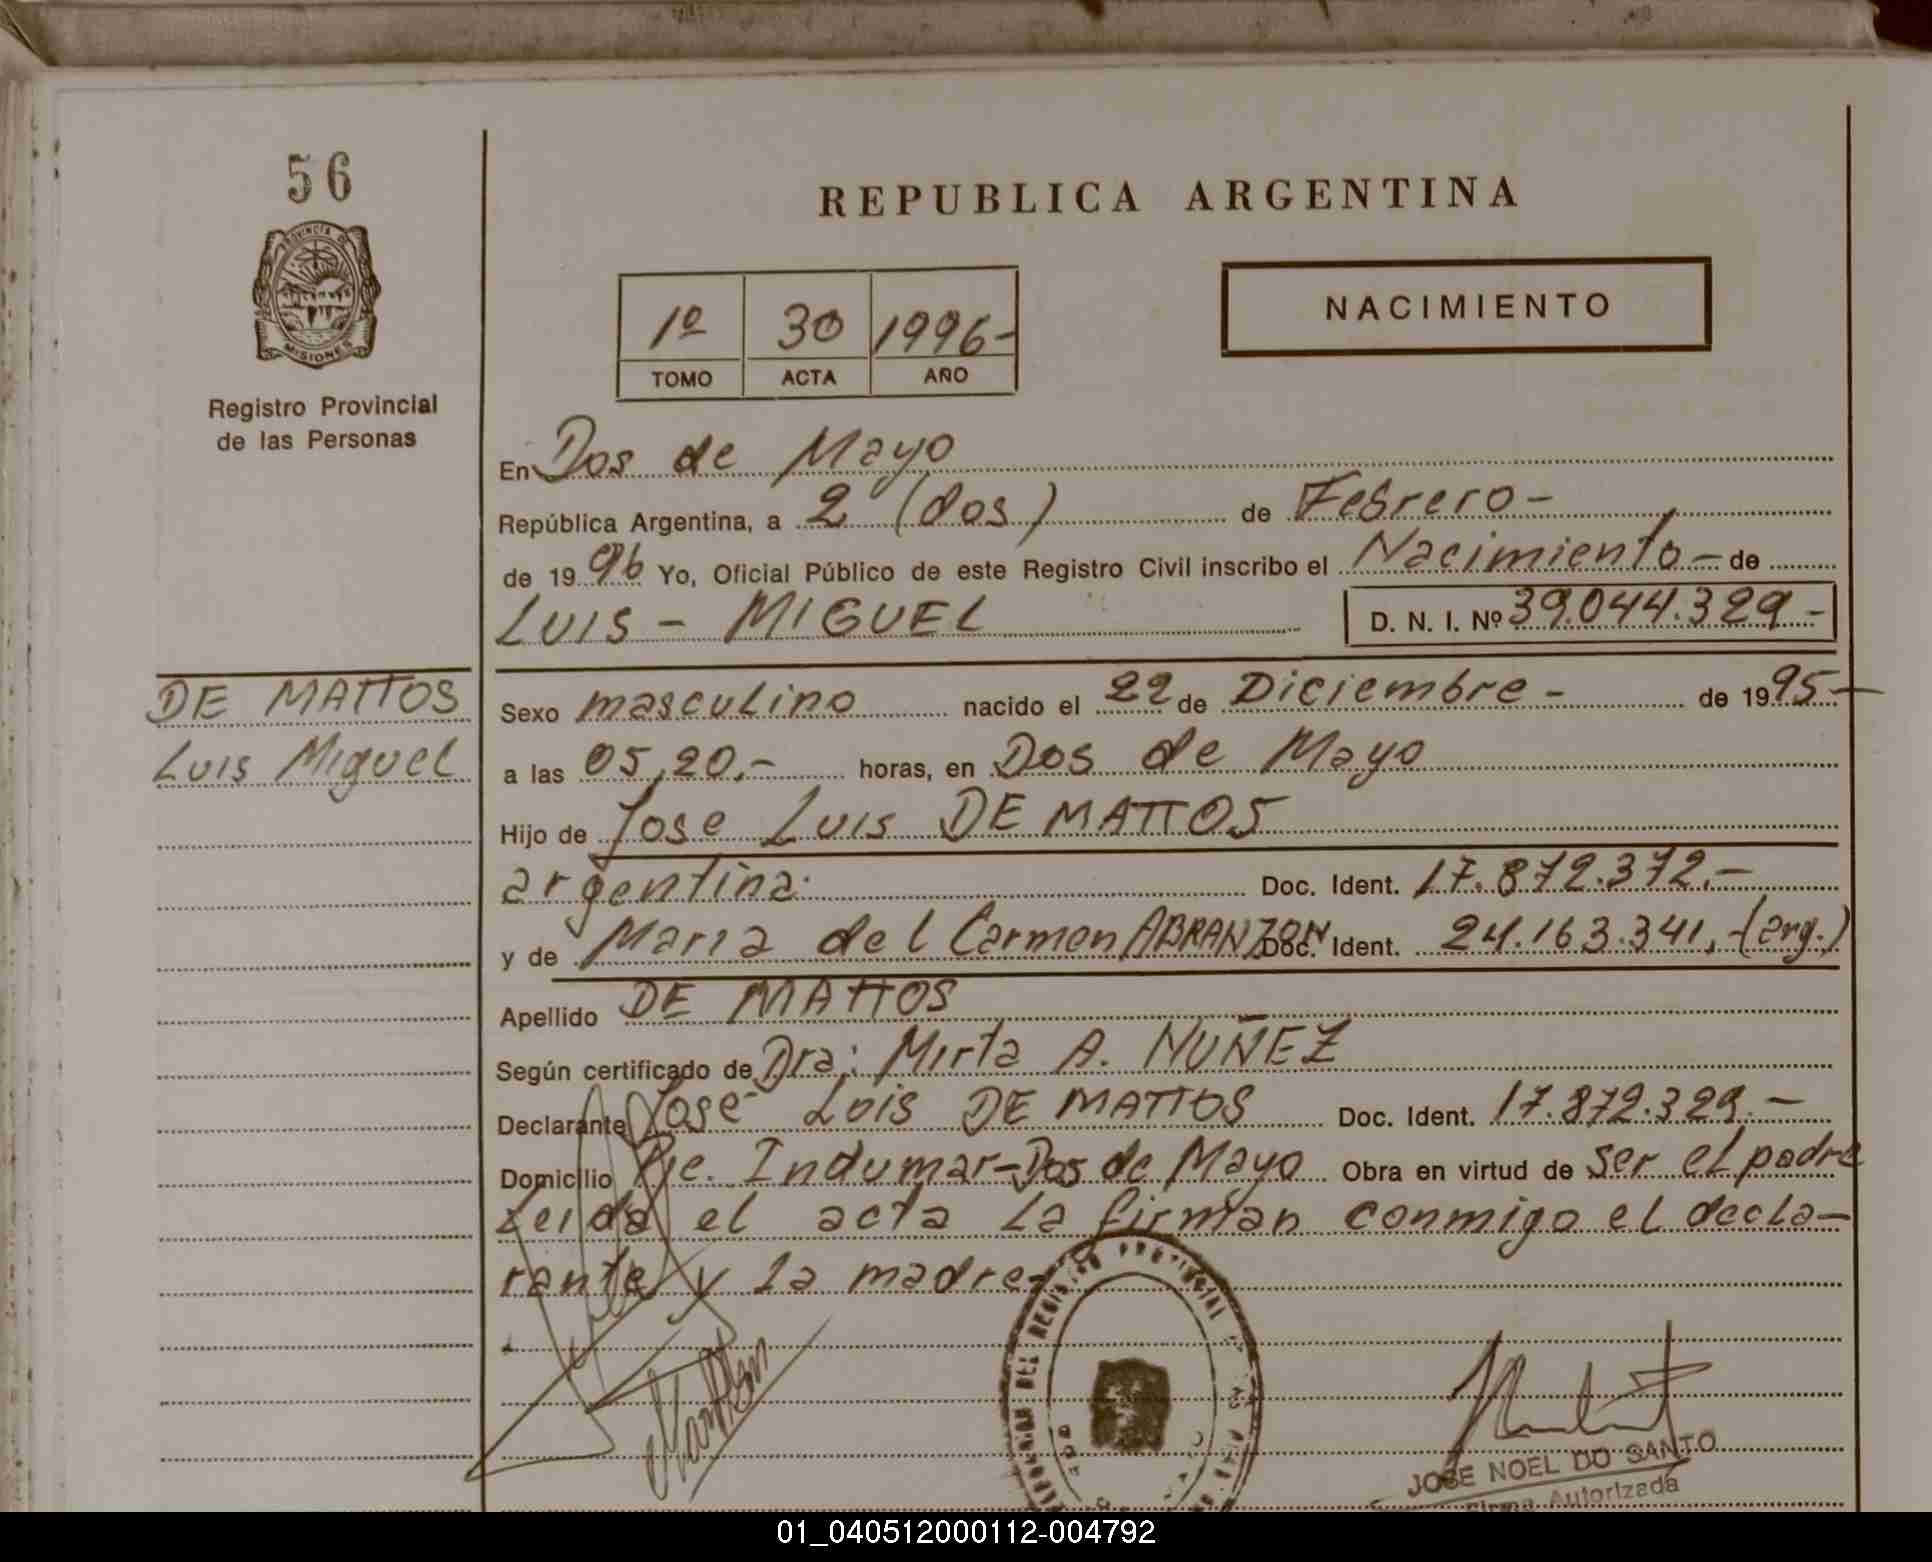 56
PROVINCIA DE
MISIONES
Registro Provincial
de las Personas
REPUBLICA ARGENTINA
1º 30 1996-
TOMO ACTA AÑO
NACIMIENTO
En Dos de Mayo
República Argentina, a 2 (dos) de Febrero-
de 1996 Yo, Oficial Público de este Registro Civil inscribo el Nacimiento- de
LUIS - MIGUEL D. N. I. Nº 39.044.329-
DE MATTOS
Luis Miguel
Sexo masculino nacido el 22 de Diciembre- de 1995-
a las 05,20.- horas, en Dos de Mayo
Hijo de Jose Luis DE MATTOS
argentina. Doc. Ident. 17.872.372.-
y de Maria del Carmen ABRANZON Doc. Ident. 24.163.341,-(arg.)
Apellido DE MATTOS
Según certificado de Dra: Mirta A. NUÑEZ
Declarante José Luis DE MATTOS Doc. Ident. 17.872.329.-
Domicilio Pje. Indumar-Dos de Mayo Obra en virtud de ser el padre
Leida el acta la firman conmigo el decla-
rante y la madre-
DEL REGISTRO PROVINCIAL
JOSE NOEL DO SANTO
Firma Autorizada
01_040512000112-004792